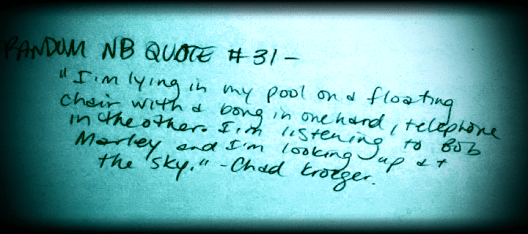 RANDOM NB QUOTE #31 -
"I'm lying in my pool on a floating
chair with a bong in one hand, telephone
in the other. I'm listening to Bob
Marley and I'm looking up at
the sky." - Chad Kroeger.